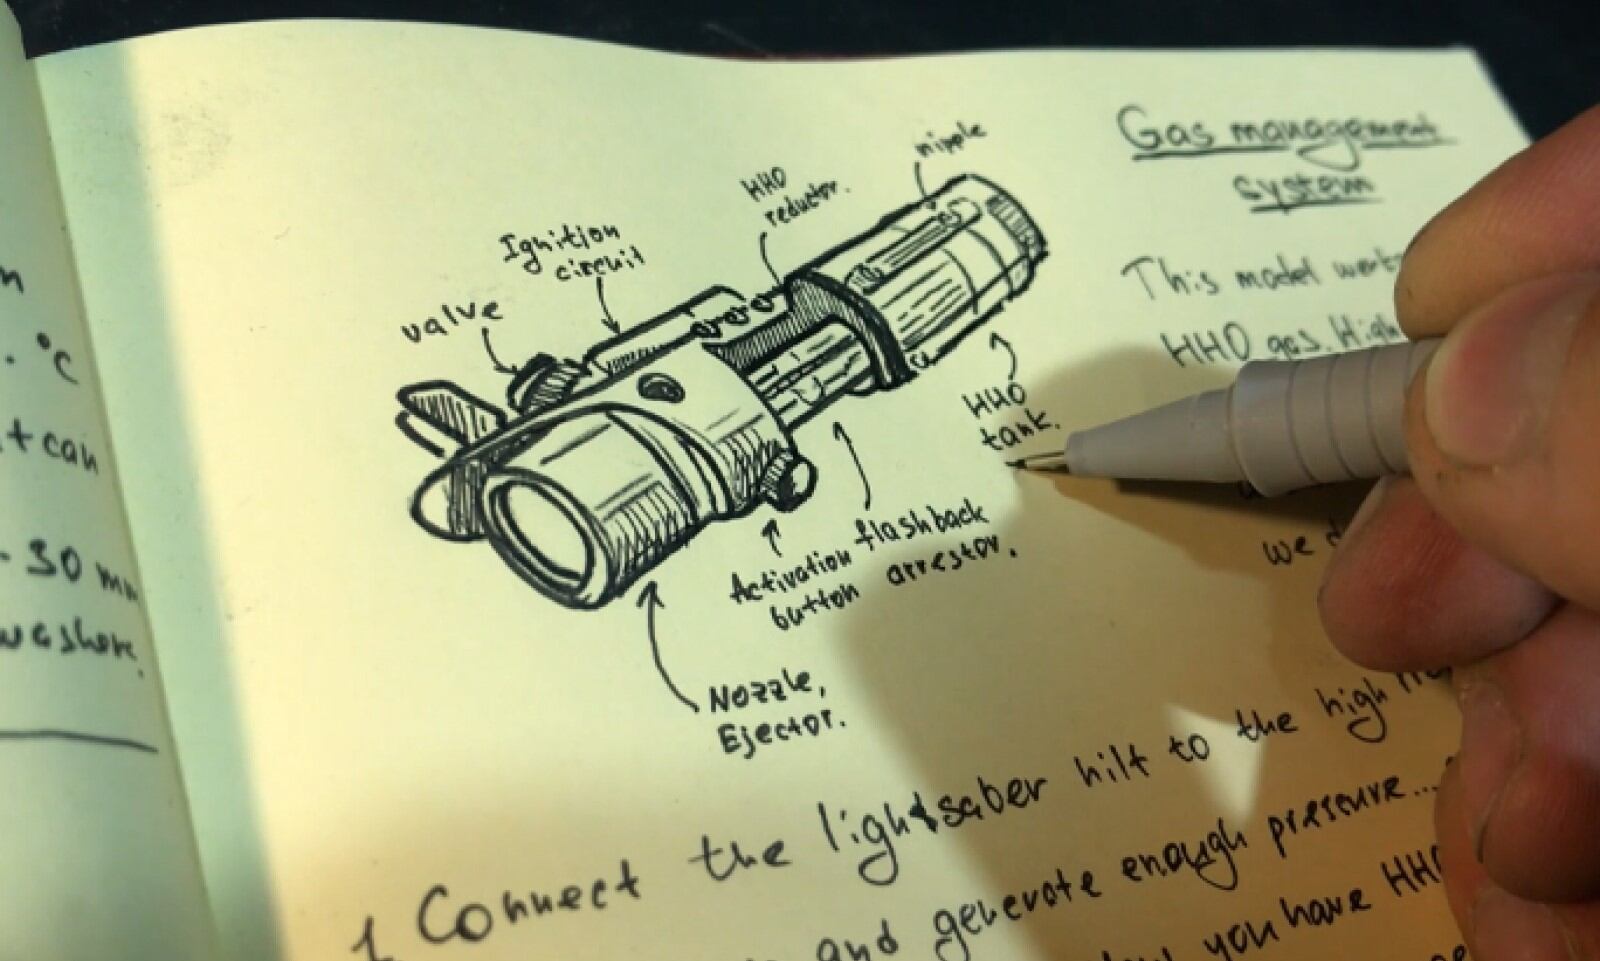 n
°C
t can
- 30 mm
washer.
nipple
HHO
reductor.
Ignition
circuit
valve
HHO
tank.
flashback
arrestor.
Activation
button
Nozzle,
Ejector.
Gas management
system
This model works
HHO gas. High
we d
1 Connect the lightsaber hilt to the high
and generate enough pressure...
you have HHO